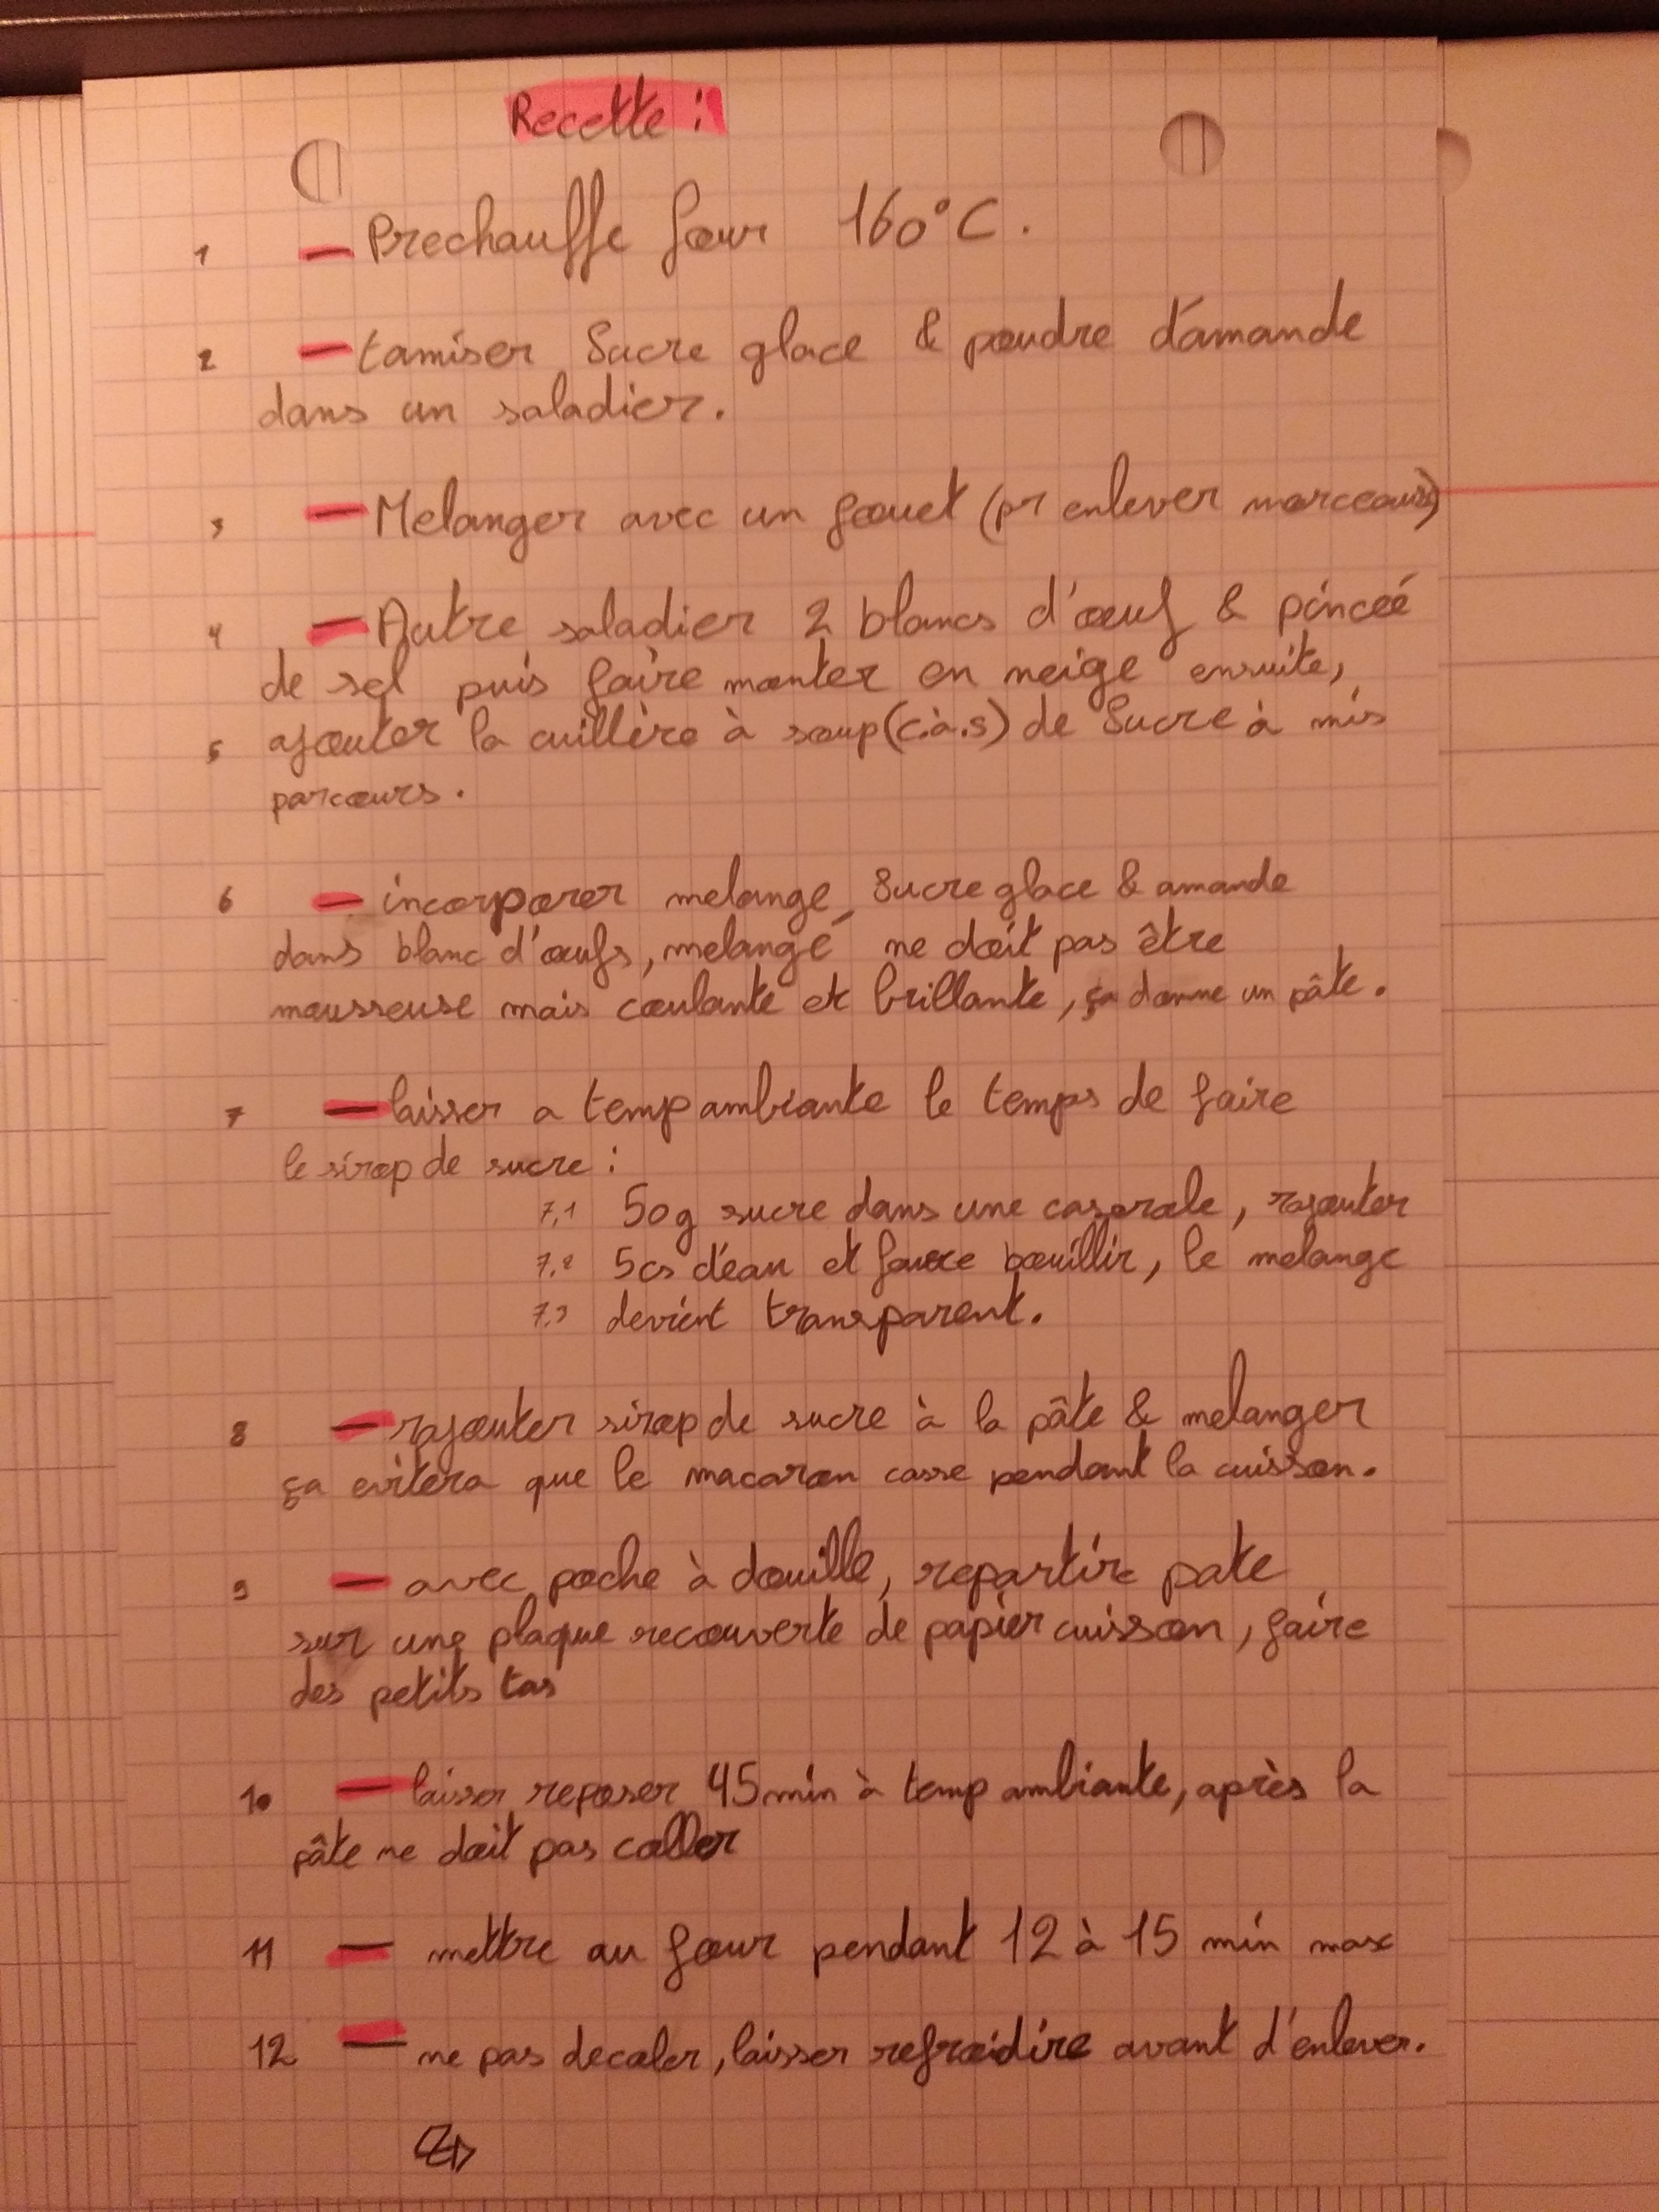 Recette :
1 — Prechauffe four 160°C.
2 — tamiser Sucre glace & poudre d'amande
dans un saladier.
3 — Melanger avec un fouet (pr enlever morceaux)
4 — Autre saladier 2 blancs d'œuf & pincéé
de sel puis faire monter en neige ensuite,
5 ajouter la cuillère à soup (c.à.s) de Sucre à mis
parcours.
6 — incorporer melange Sucre glace & amande
dans blanc d'œufs, melangé ne doit pas être
mousseuse mais coulante et brillante, ça donne un pâte.
7 — laisser a temp ambiante le temps de faire
le sirop de sucre :
7,1 50g sucre dans une casorale, rajouter
7,2 5cs d'eau et faire bouillir, le melange
7,3 devient transparent.
8 — rajouter sirop de sucre à la pâte & melanger
ça evitera que le macaron casse pendant la cuisson.
9 — avec poche à douille, repartire pate
sur une plaque recouverte de papier cuisson, faire
des petits tas
10 — laisser reposer 45min à temp ambiante, après la
pâte ne doit pas coller
11 — mettre au four pendant 12 à 15 min max
12 — ne pas decoler, laisser refroidire avant d'enlever.